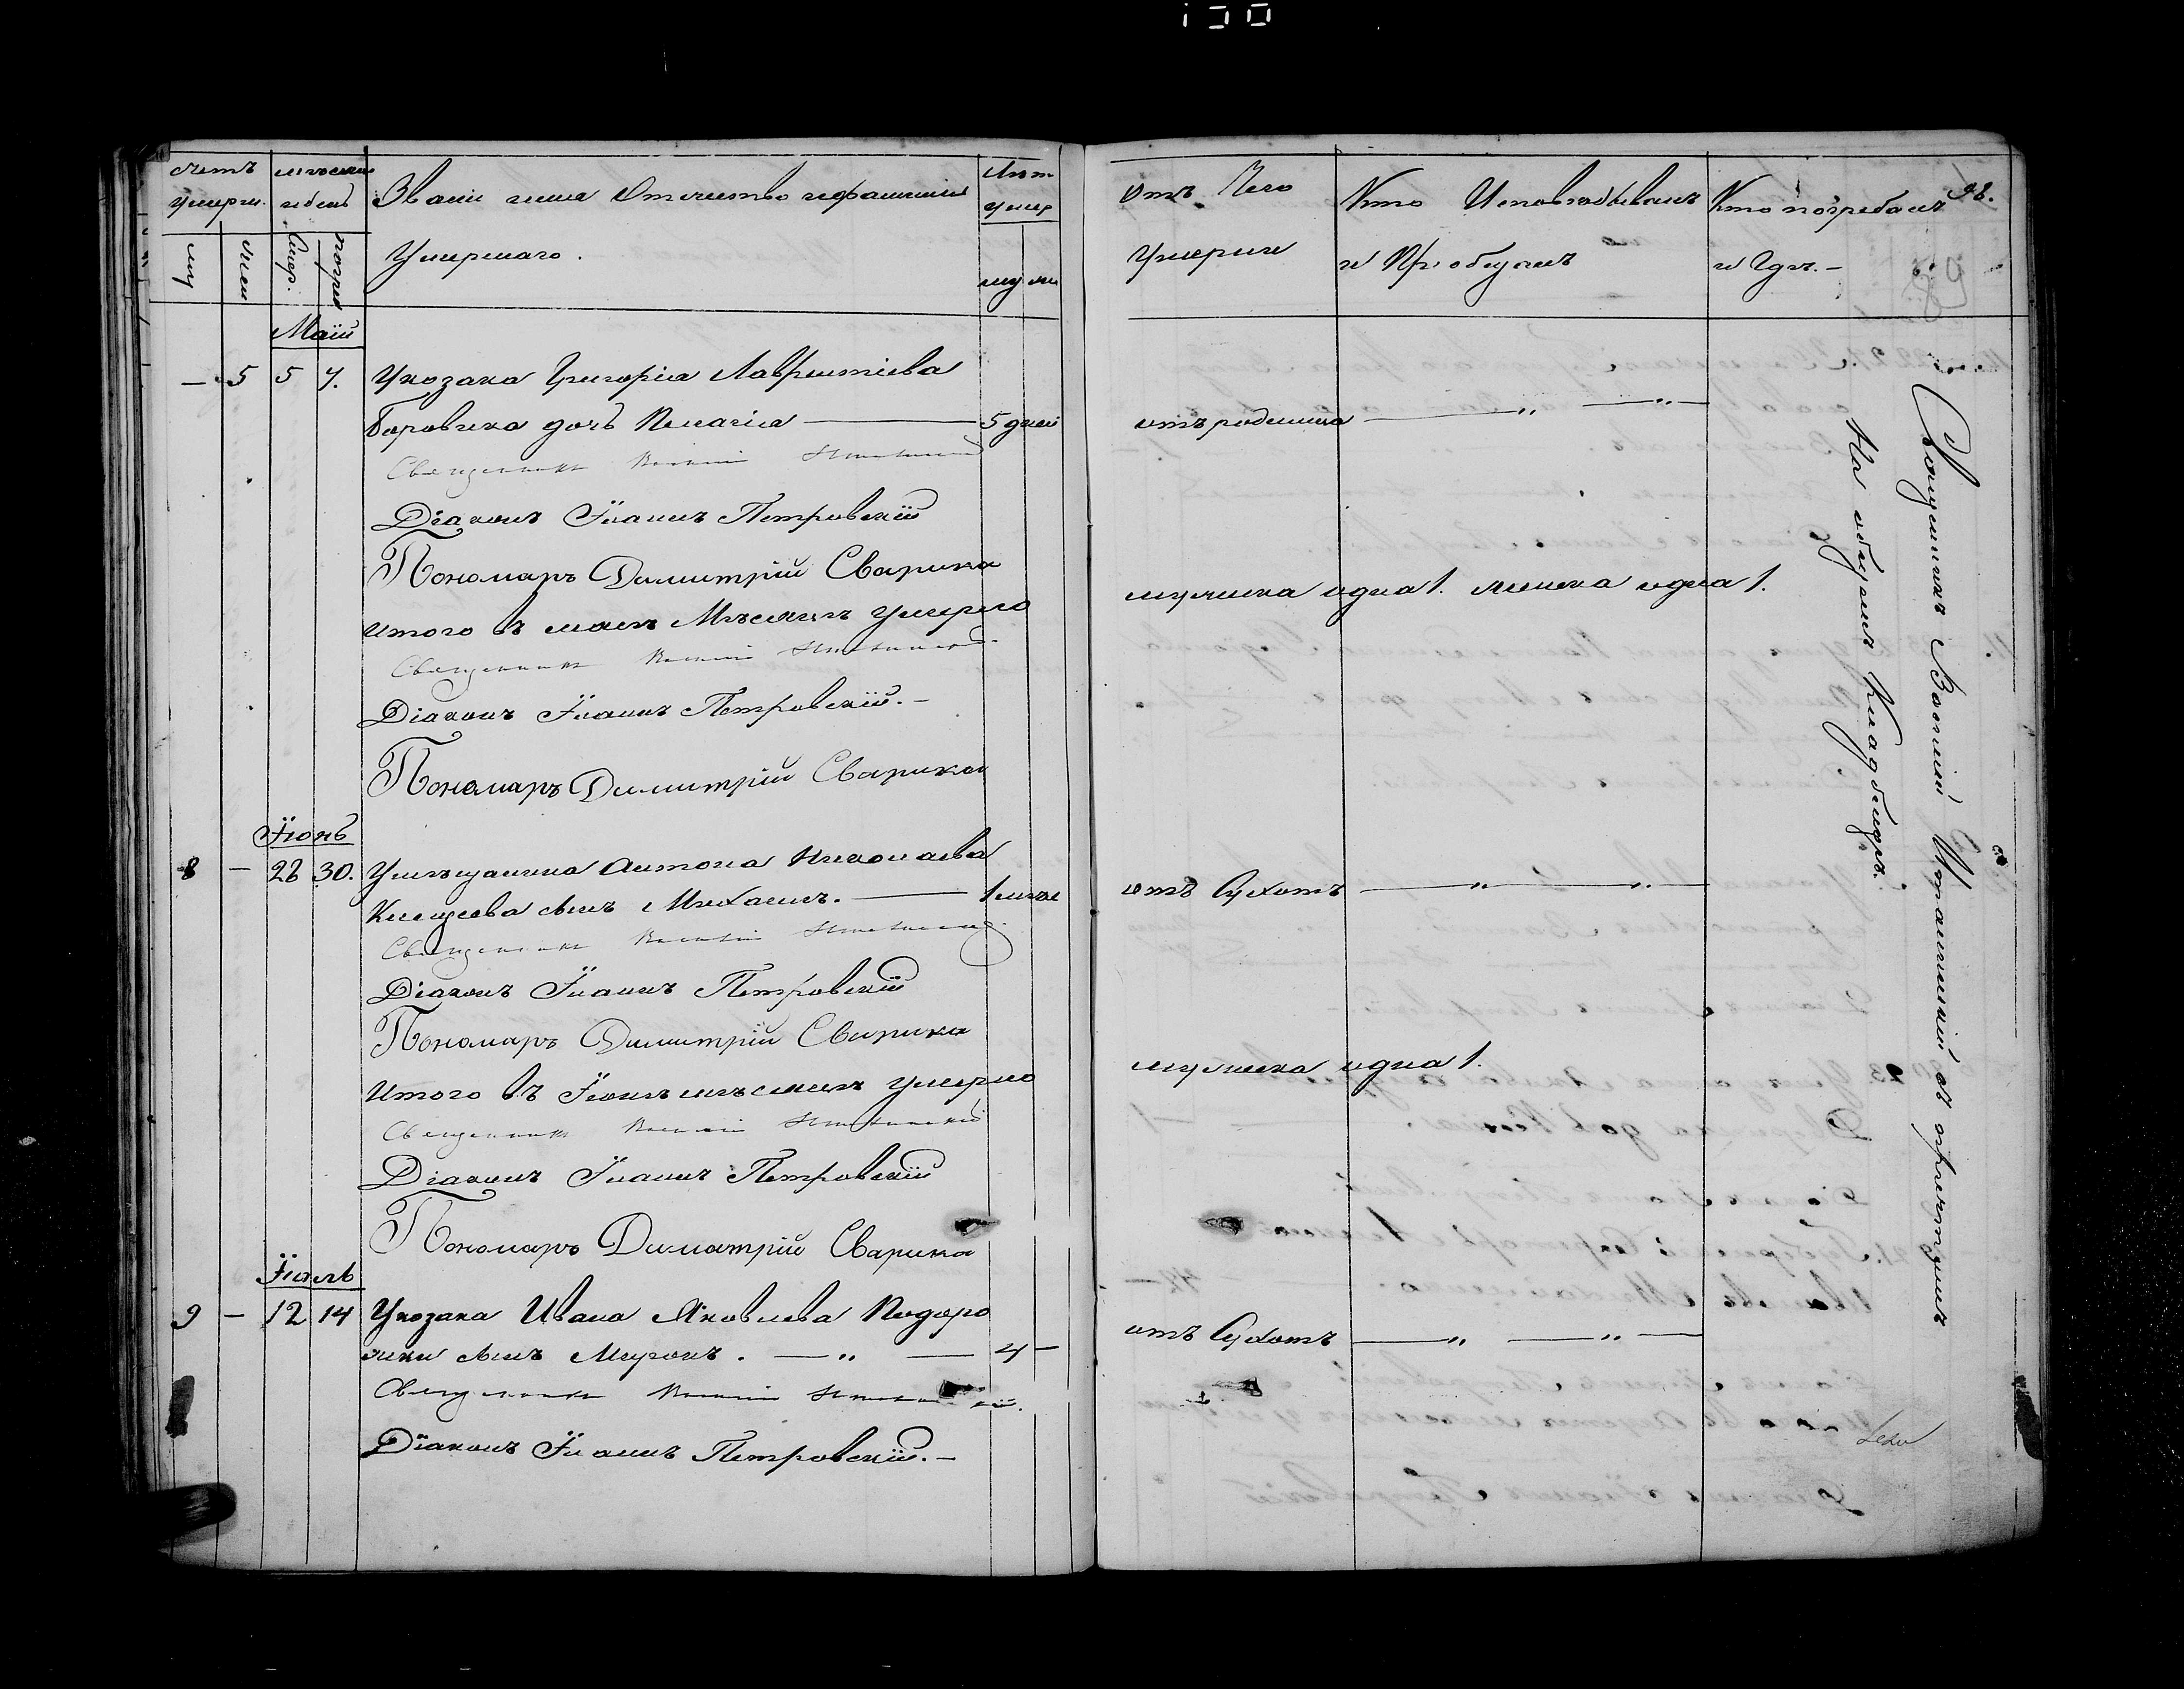 счетъ умерш.
мѣсяцъ и день
Званіе имя Отчество и фамилія
Умершаго.
Лѣт умер
му
жен
Смер.
погреб
му же
Маій
— 5 5 7. У козака Григорія Лаврентіева
Боровика дочь Пелагія — 5 дней
Священникъ Василій
Діаконъ Іоаннъ Петровскій
Пономарь Димитрій Сварика
Итого въ маѣ Мѣсяцѣ умерло
Священникъ Василій
Діаконъ Іоаннъ Петровскій.—
Пономарь Димитрій Сварика
Іюнь
8 — 28 30. У мѣщанина Антона Николаева
сынъ Михаилъ. — 1 мѣся
Священникъ Василій
Діаконъ Іоаннъ Петровскій
Пономарь Димитрій Сварика
Итого въ Іюнѣ мѣсяцѣ умерло
Священникъ Василій
Діаконъ Іоаннъ Петровскій
Пономарь Димитрій Сварика
Іюль
9 — 12 14 У козака Ивана Яковлева Подоро
жки сынъ Миронъ. — „ — 4 —
Священникъ Василій
Діаконъ Іоаннъ Петровскій.—
Отъ Чего
Умерли
Кто Исповѣдывалъ
и Пріобщалъ
Кто погребалъ
и Гдѣ.—
98.
отъ родимца — „ — „ —
мужеска одна 1. женска одна 1.
отъ Сухотъ — „ — „ —
мужеска одна 1.
отъ Сухотъ — „ — „ —
Священникъ Василій съ причтомъ
На общемъ кладбищѣ.